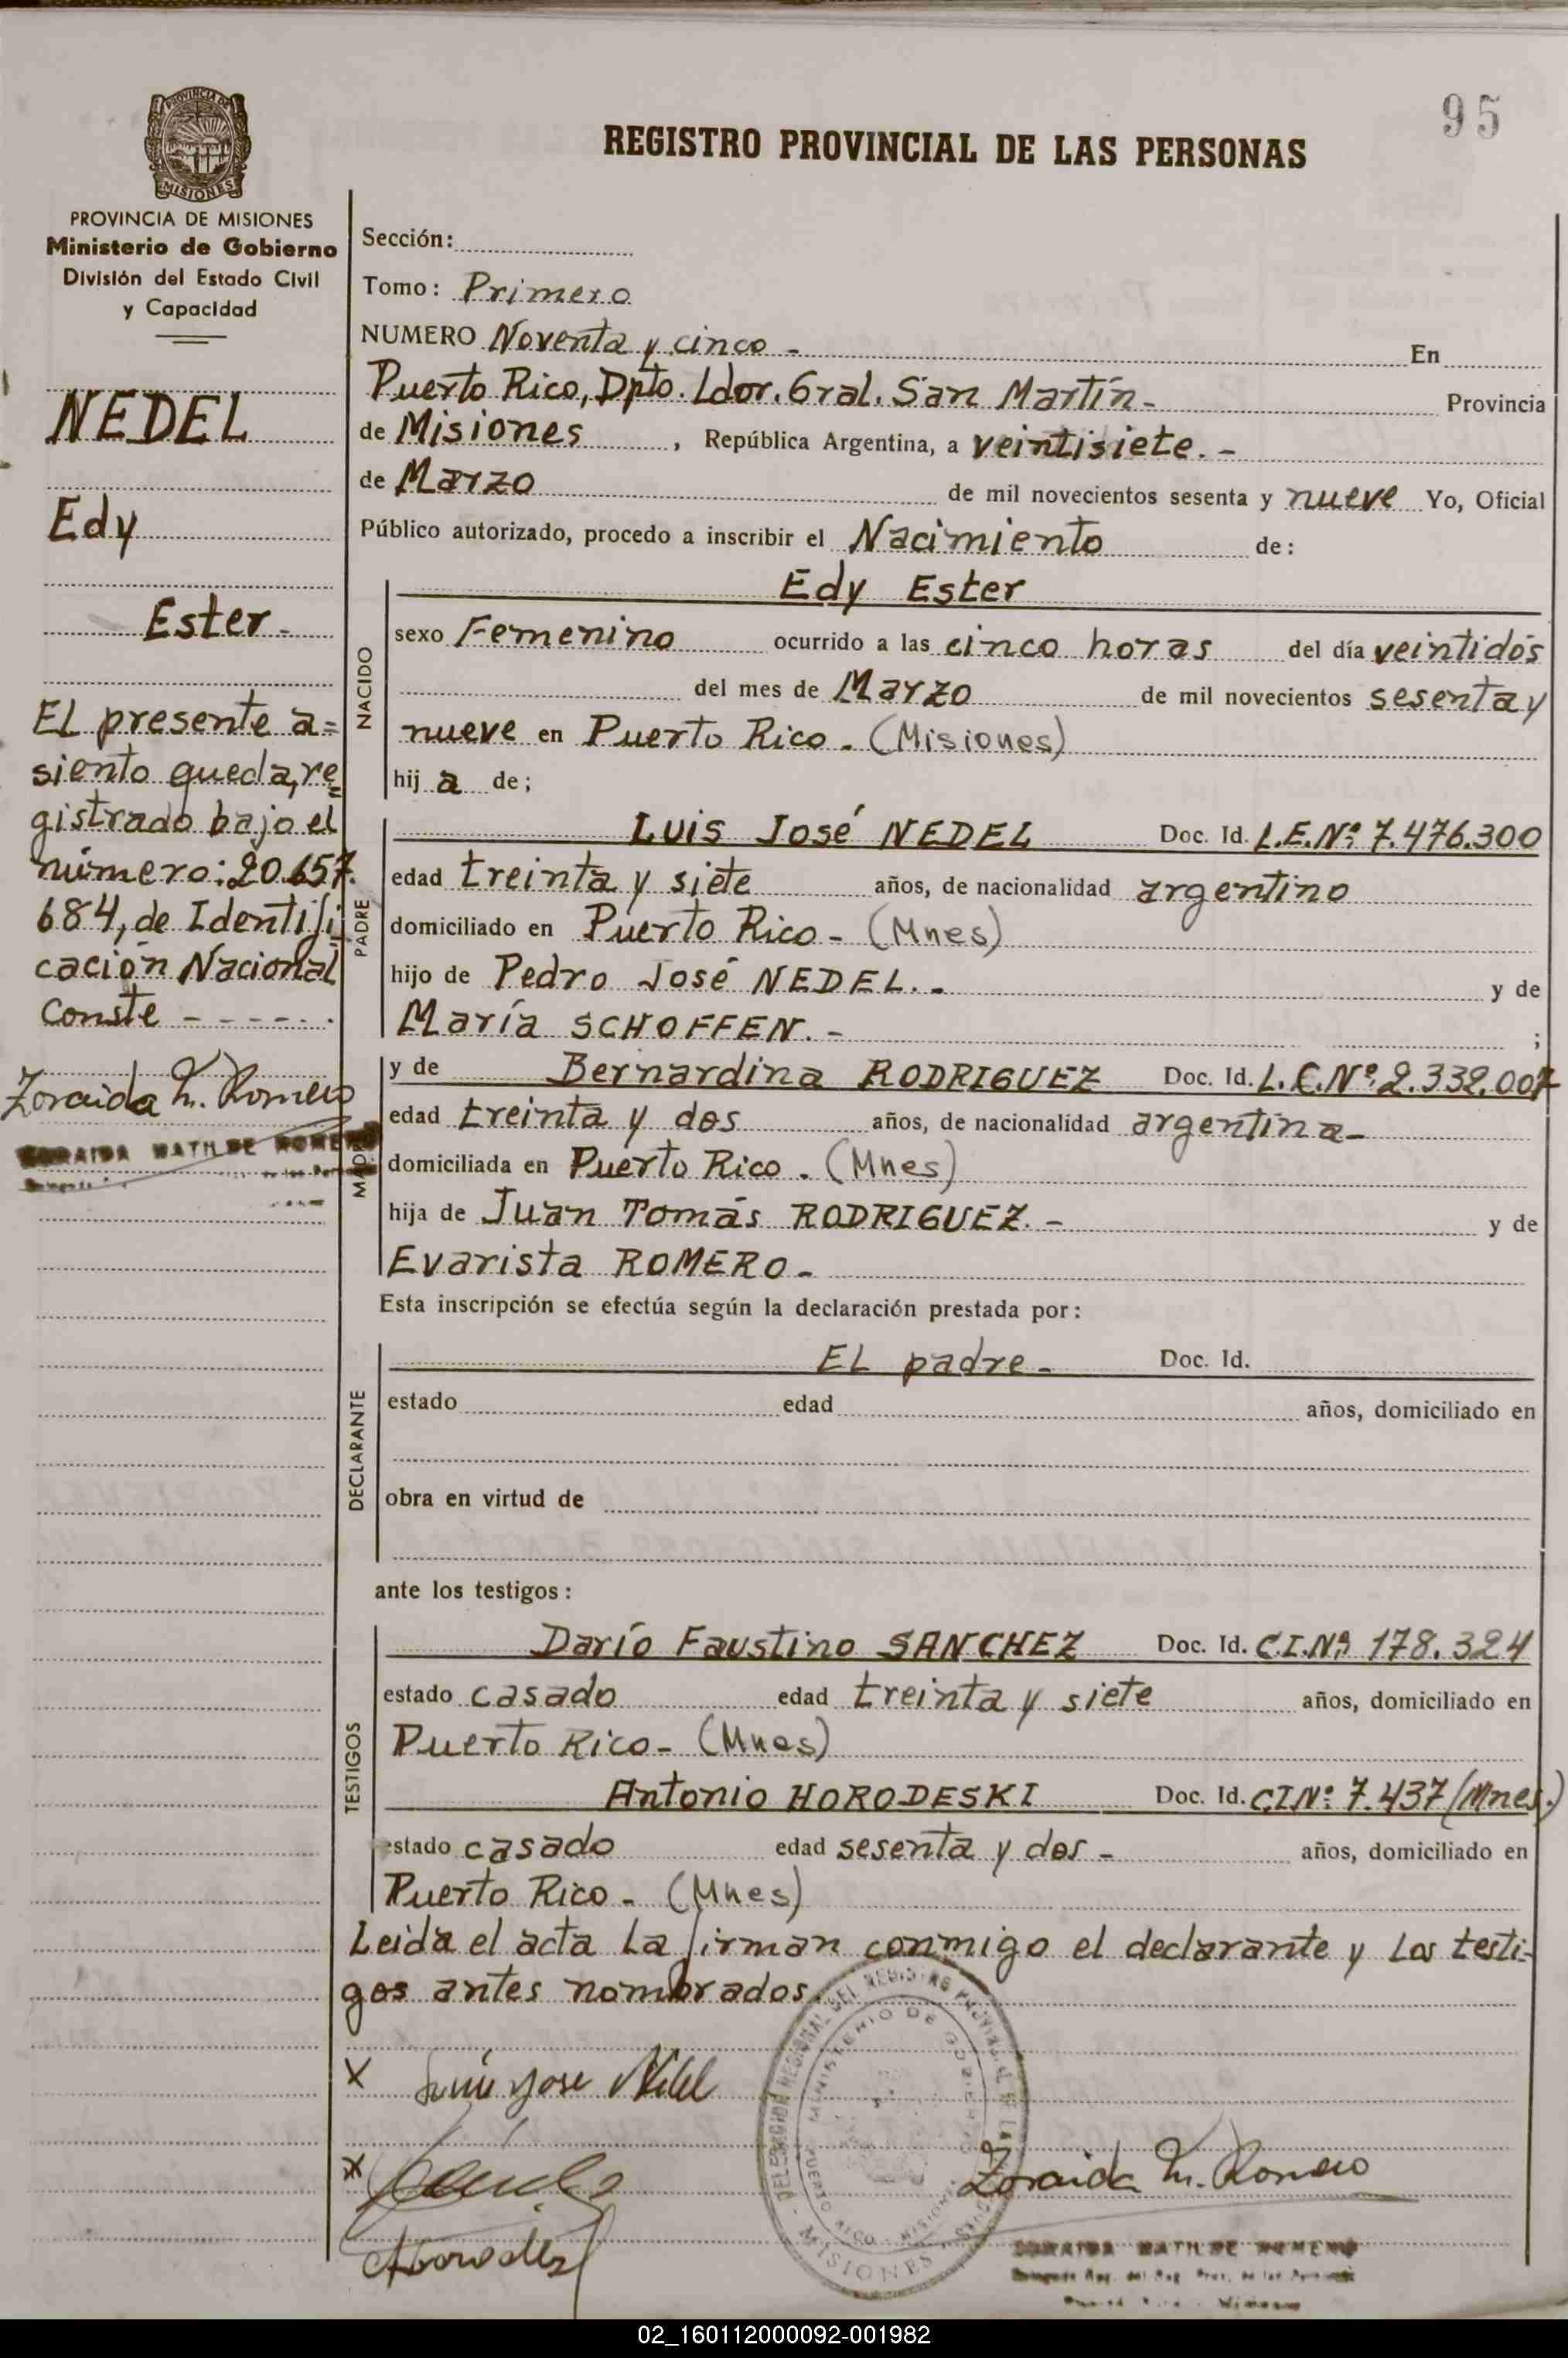 95
REGISTRO PROVINCIAL DE LAS PERSONAS
PROVINCIA DE
MISIONES
PROVINCIA DE MISIONES
Ministerio de Gobierno
División del Estado Civil
y Capacidad
NEDEL
Edy
Ester-
El presente a=
siento queda, re=
gistrado bajo el
número: 20.657.
684, de Identifi
cación Nacional
Conste - - - - - .
Zoraida M. Romero
ZORAIDA MATILDE ROMERO
Sección:
Tomo: Primero
NUMERO Noventa y cinco - En
Puerto Rico, Dpto. Ldor. Gral. San Martín- Provincia
de Misiones , República Argentina, a veintisiete. -
de Marzo de mil novecientos sesenta y nueve Yo, Oficial
Público autorizado, procedo a inscribir el Nacimiento de:
NACIDO
Edy Ester
sexo Femenino ocurrido a las cinco horas del día veintidós
del mes de Marzo de mil novecientos sesenta y
nueve en Puerto Rico. (Misiones)
hij a de;
PADRE
Luis José NEDEL Doc. Id. L.E.Nº 7.476.300
edad treinta y siete años, de nacionalidad argentino
domiciliado en Puerto Rico- (Mnes)
hijo de Pedro José NEDEL. - y de
María SCHOFFEN. - ;
MADRE
y de Bernardina RODRIGUEZ Doc. Id. L.C.Nº 2.332.007
edad treinta y dos años, de nacionalidad argentina-
domiciliada en Puerto Rico. (Mnes)
hija de Juan Tomás RODRIGUEZ. - y de
Evarista ROMERO-
Esta inscripción se efectúa según la declaración prestada por:
DECLARANTE
El padre- Doc. Id.
estado edad años, domiciliado en
obra en virtud de
ante los testigos:
TESTIGOS
Darío Faustino SANCHEZ Doc. Id. C.I.Nº 178.324
estado casado edad treinta y siete años, domiciliado en
Puerto Rico- (Mnes)
Antonio HORODESKI Doc. Id. CINº 7.437 (Mnes.)
estado casado edad sesenta y dos - años, domiciliado en
Puerto Rico- (Mnes)
Leida el acta la firman conmigo el declarante y los testi-
gos antes nombrados.
X Luis Jose Nedel
X
Zoraida M. Romero
DELEGACION REGIONAL DEL REGISTRO PROVINCIAL DE LAS PERSONAS
MINISTERIO DE GOBIERNO
PUERTO RICO - MISIONES
- MISIONES -
ZORAIDA MATILDE ROMERO
Delegada Reg. del Reg. Prov. de las Personas
02_160112000092-001982